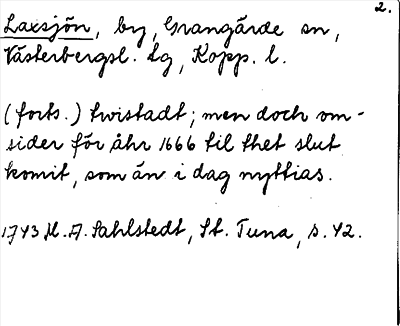 2.
Laxsjön, by, Grangärde sn,
Västerbergsl. lg, Kopp. l.
(forts.) twistadt; men doch om-
sider för åhr 1666 til thet slut
komit, som än i dag nyttias.
1743 M. A. Sahlstedt, St. Tuna, s. 42.